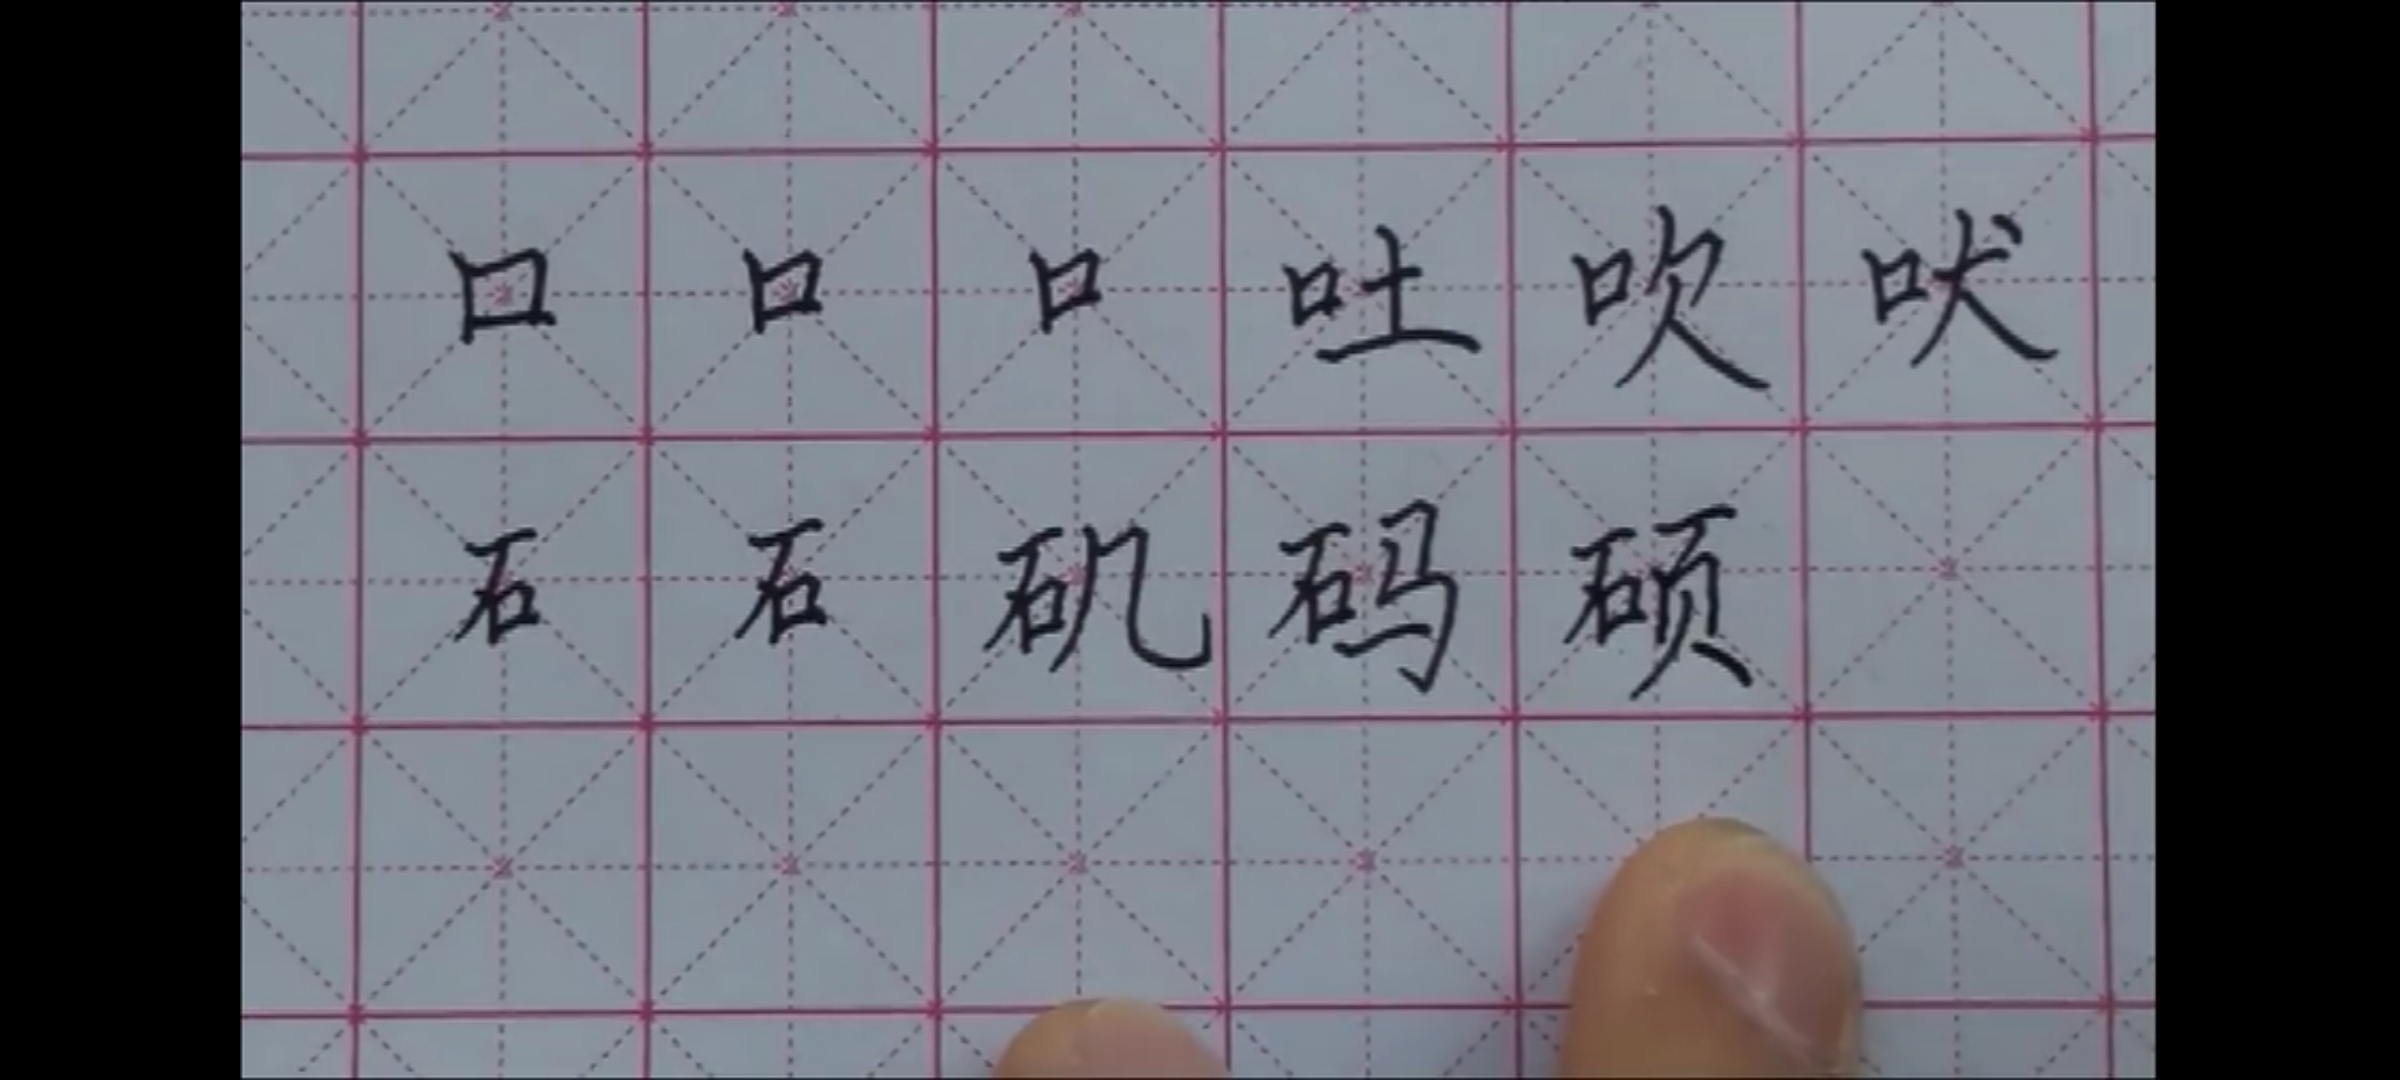 口口口吐吹吠
石石矶码硕